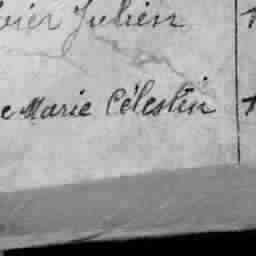 vier Julien
e Marie Célestin